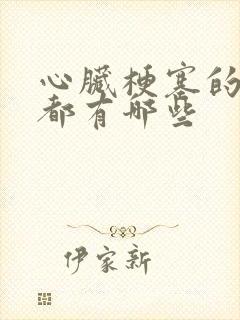 心臟梗塞的
都有哪些
伊家新